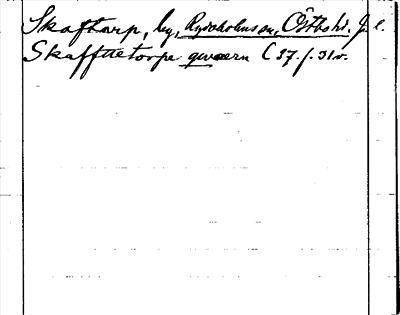 Skaftarp, by, Rydaholms sn, Östbo hd. J. l.
Skafftetorpe qwern C 37. f. 31 v.